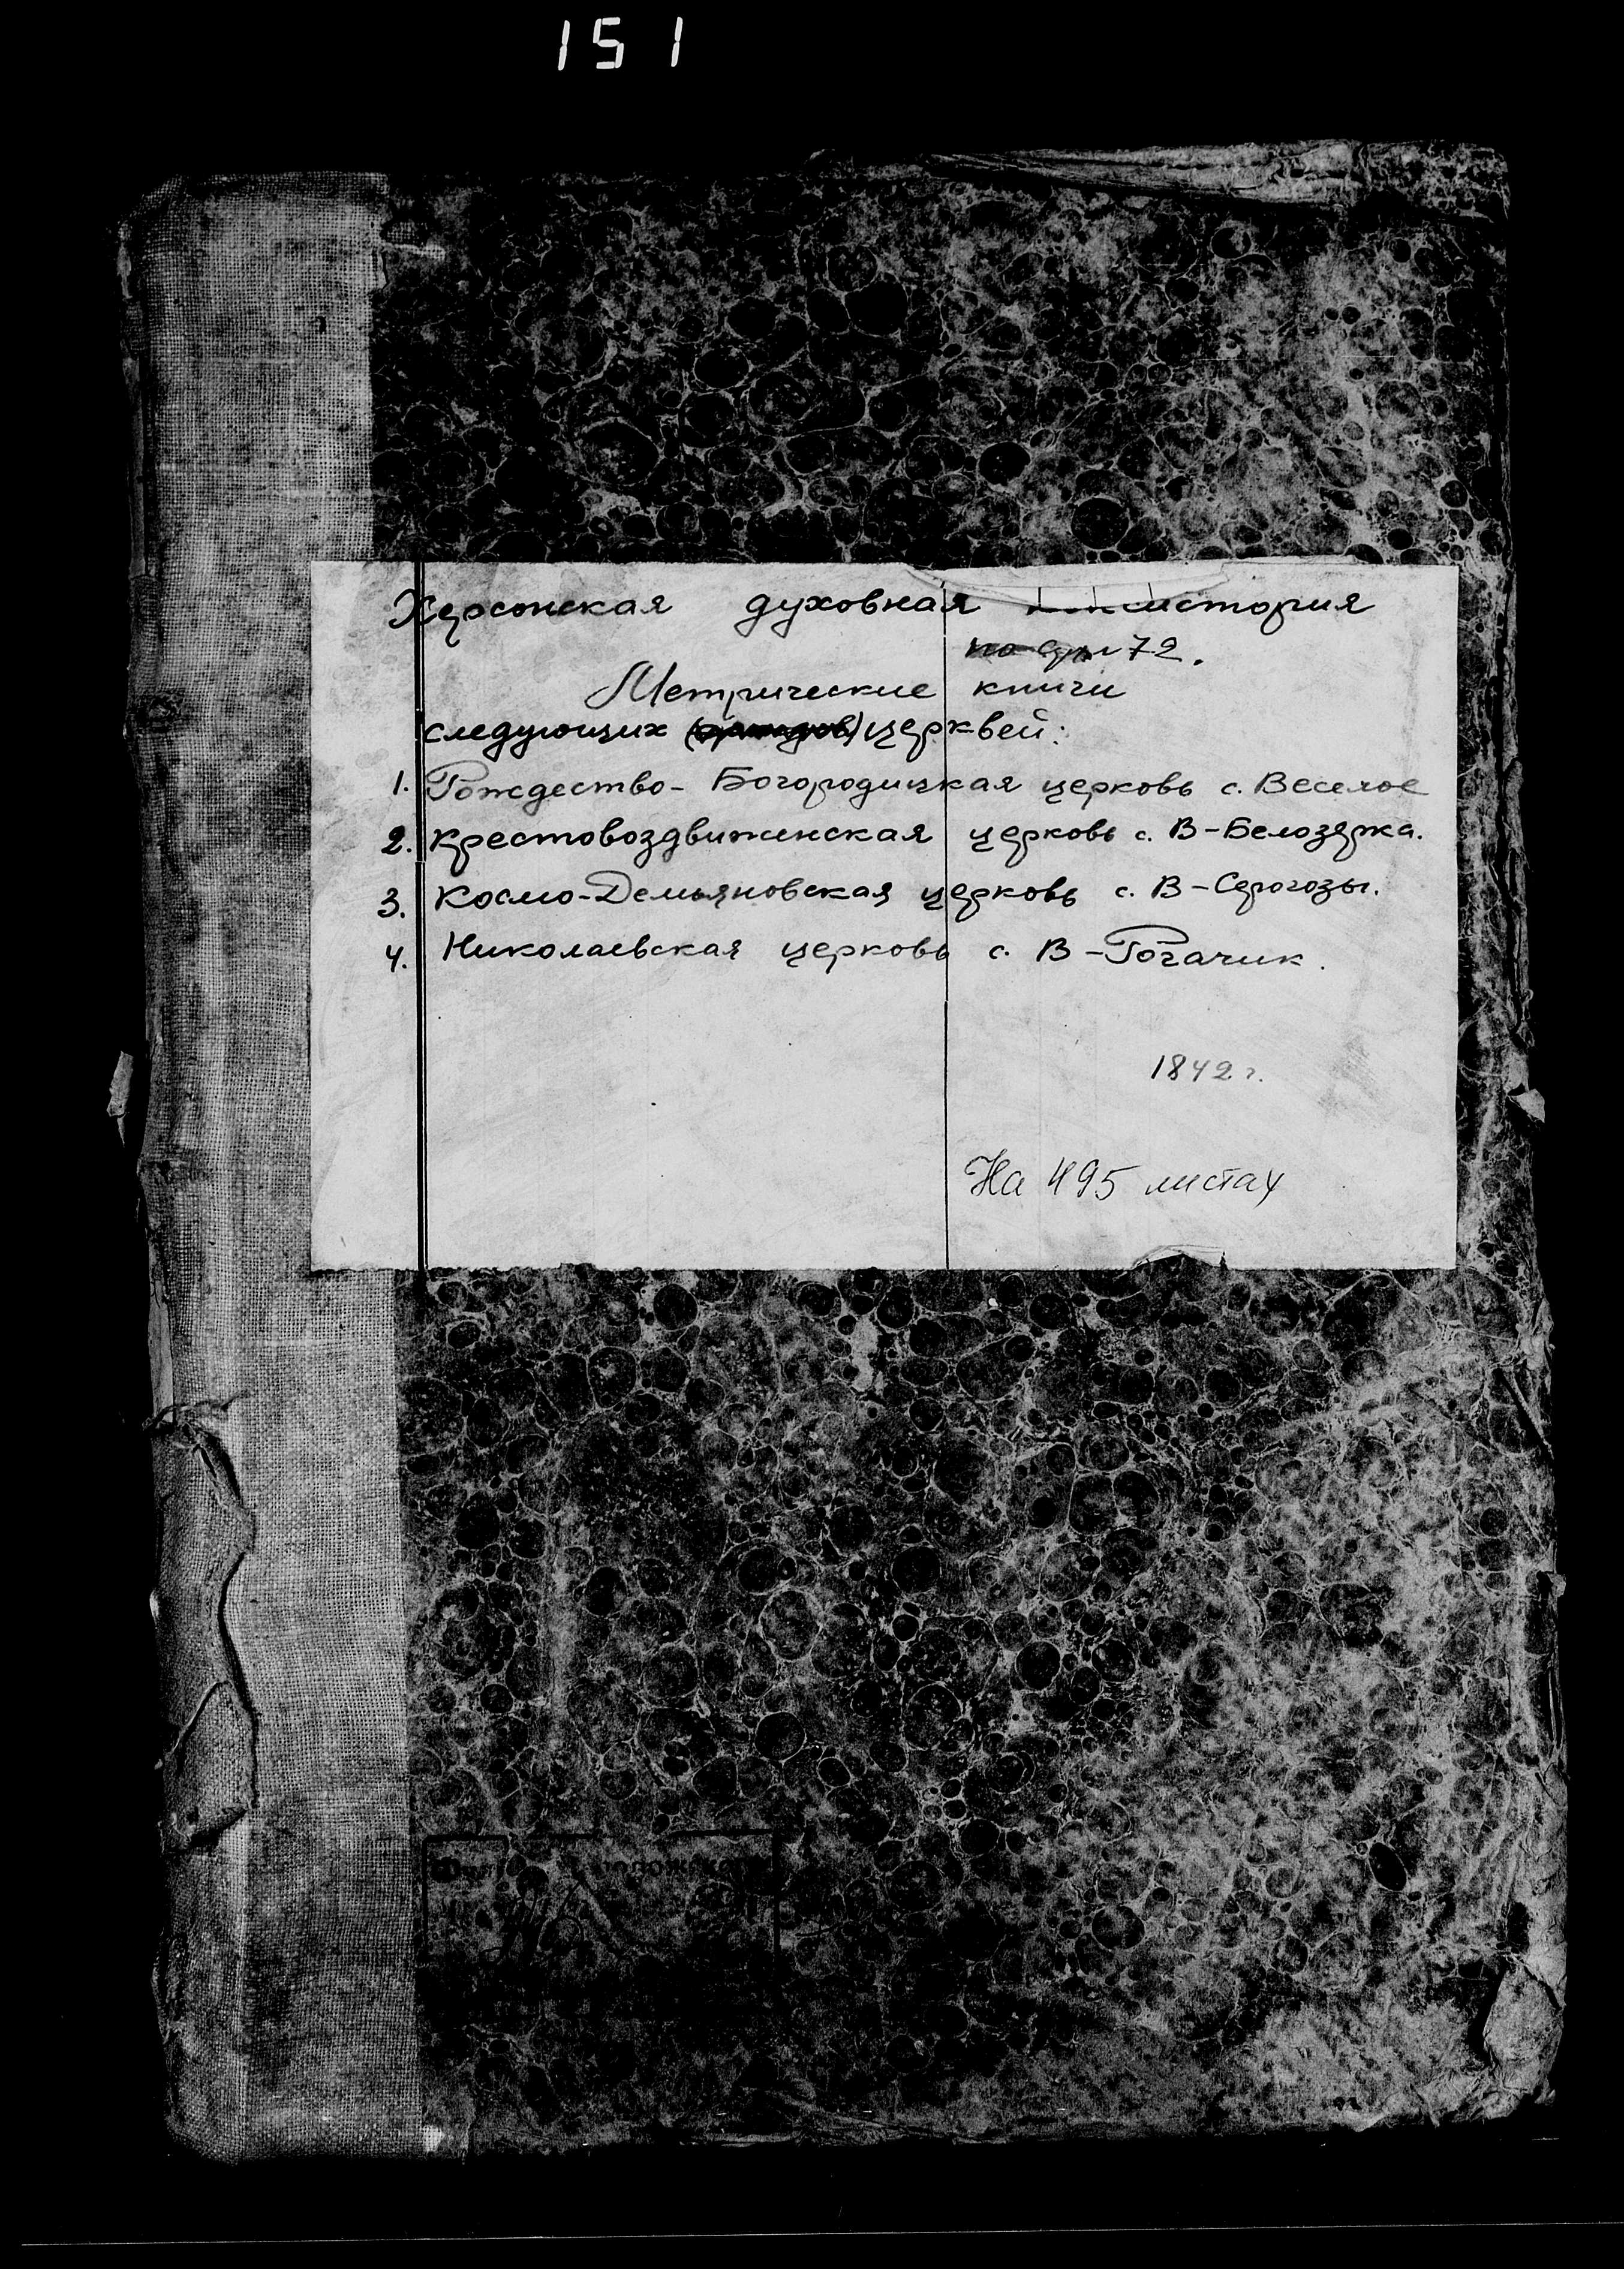 151
Херсонская духовная консистория
72.
Метрические книги
следующих церквей:
1. Рождество-Богородицкая церковь с. Веселое
2. Крестовоздвиженская церковь с. В-Белозерка.
3. Космо-Демьяновская церковь с. В-Серогозы.
4. Николаевская церковь с. В-Рогачик.
1842 г.
На 495 листах